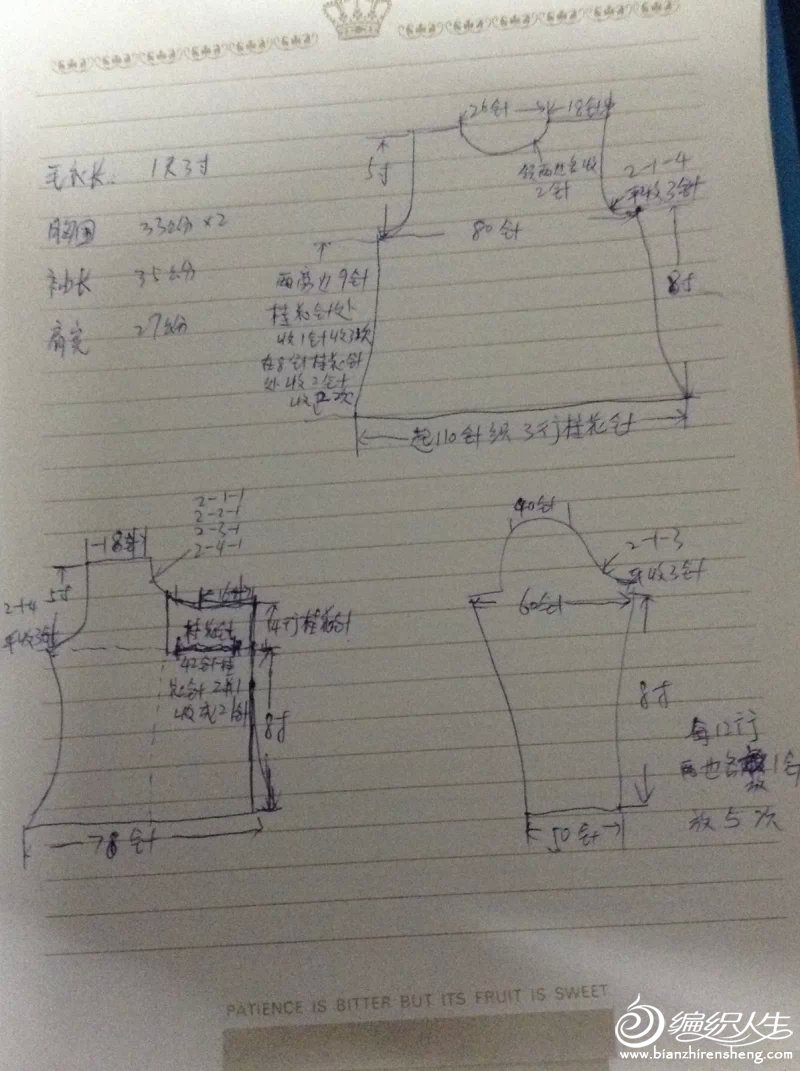 毛衣长: 1尺3寸
胸围 33公分×2
袖长 35公分
肩宽 27公分
26针
18针
5寸
领两边各收
2针
2-1-4
平收3针
80针
8寸
两旁边9针
桂花针处
收1针收3次
在8针桂花针
处收2针
收2次
起110针织3行桂花针
18针
2-1-1
2-2-1
2-3-1
2-4-1
5寸
2-1-4
平收3针
16针
桂花针
14行桂花针
42针桂
花针2收1
收成21针
8寸
78针
40针
2-1-3
平收3针
60针
8寸
每12行
两边各放1针
放5次
50针
PATIENCE IS BITTER BUT ITS FRUIT IS SWEET
编织人生
www.bianzhirensheng.com